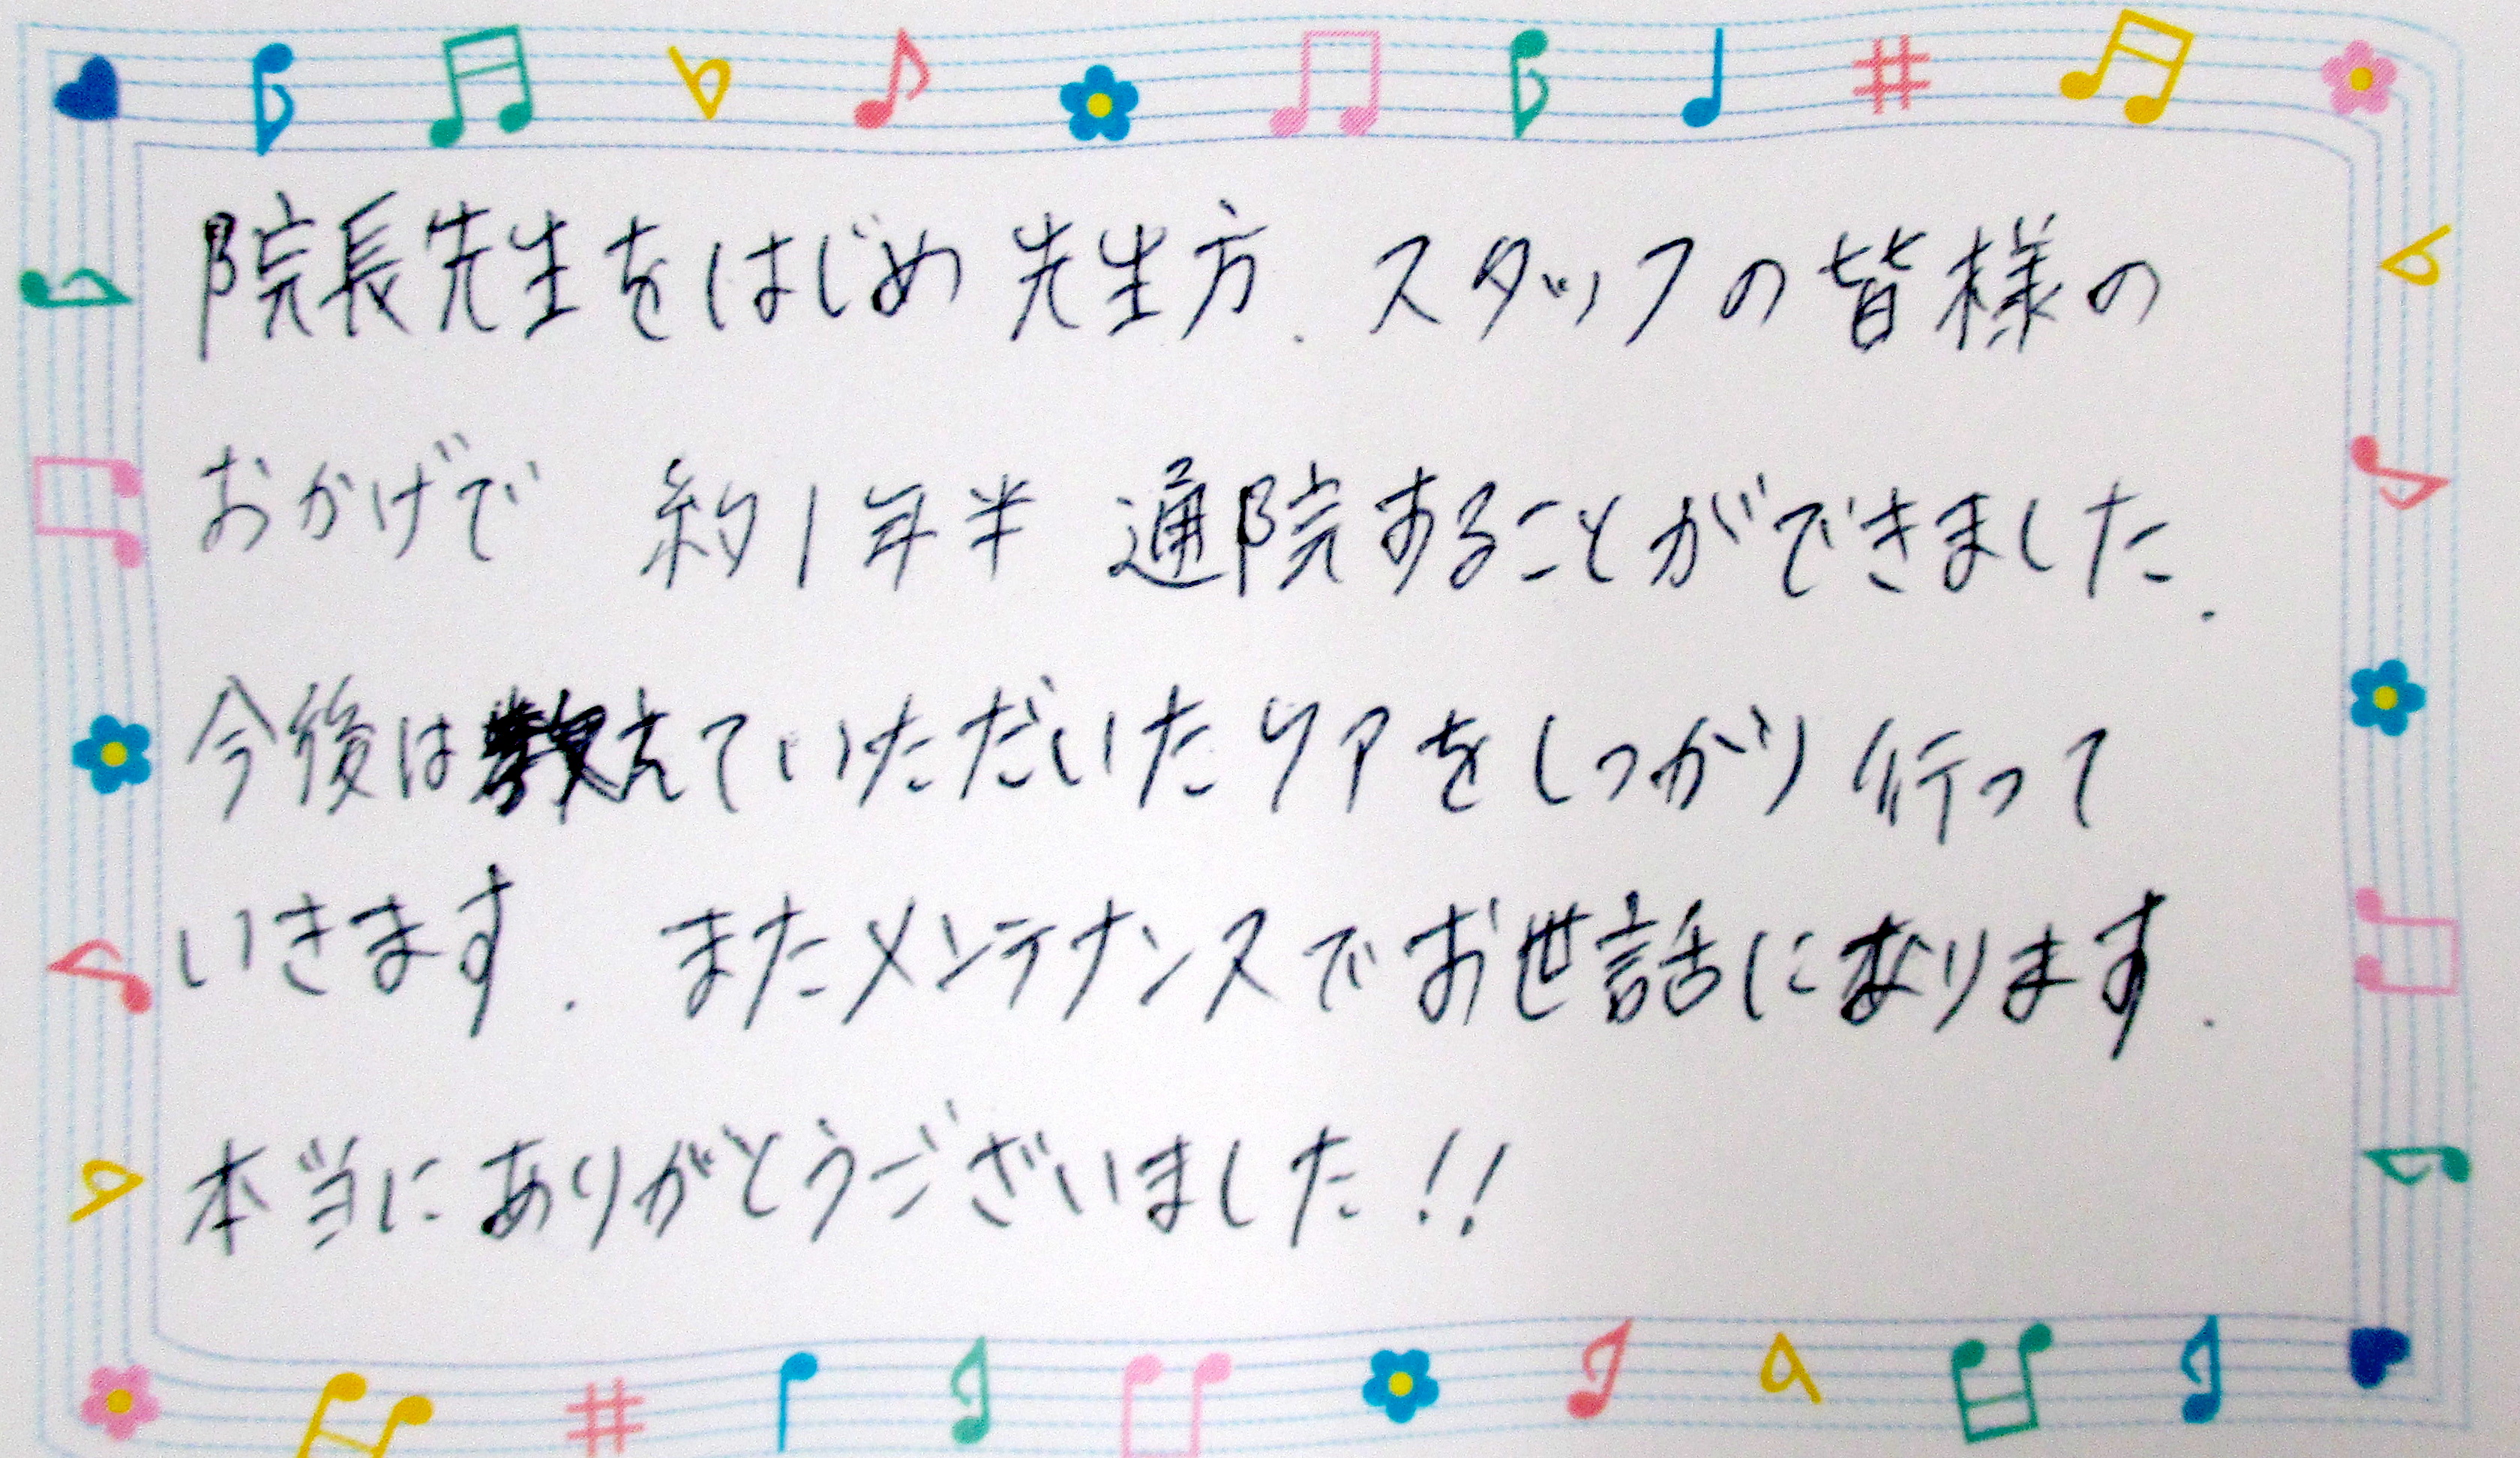 院長先生をはじめ 先生方、スタッフの皆様の
おかげで 約1年半 通院することができました。
今後は教えていただいたケアをしっかり行って
いきます。 またメンテナンスでお世話になります。
本当にありがとうございました!!